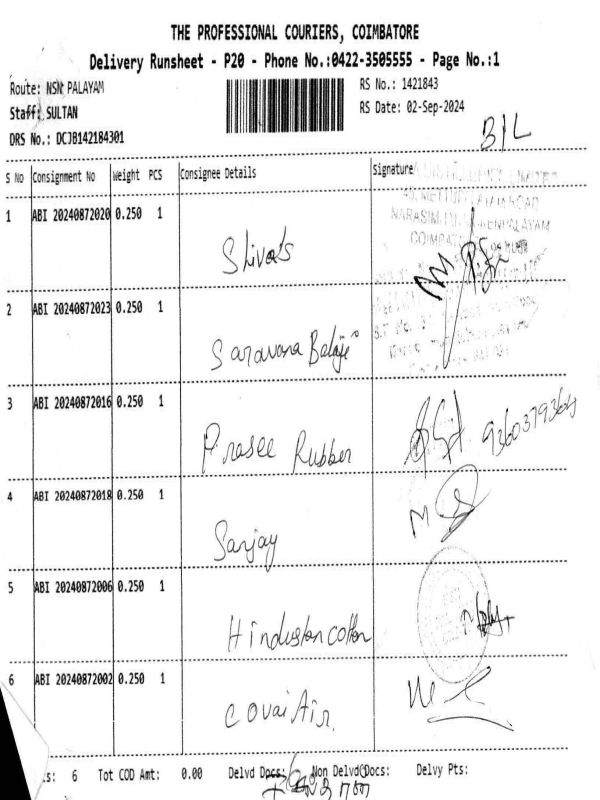 THE PROFESSIONAL COURIERS, COIMBATORE
Delivery Runsheet - P20 - Phone No.:0422-3505555 - Page No.:1
Route: NSN PALAYAM
RS No.: 1421843
Staff: SULTAN
RS Date: 02-Sep-2024
DRS No.: DCJB142184301
B/L
S No Consignment No Weight PCS Consignee Details Signature
LIMITED
ROAD
1 ABI 20240872020 0.250 1 Shiva's
2 ABI 20240872023 0.250 1 Saravana Balaji
3 ABI 20240872016 0.250 1 Prasee Rubber 9360379364
4 ABI 20240872018 0.250 1 Sanjay
5 ABI 20240872006 0.250 1 Hinduston cotton
6 ABI 20240872002 0.250 1 Covai Air.
ts: 6 Tot COD Amt: 0.00 Delvd Docs: Non Delvd Docs: Delvy Pts: